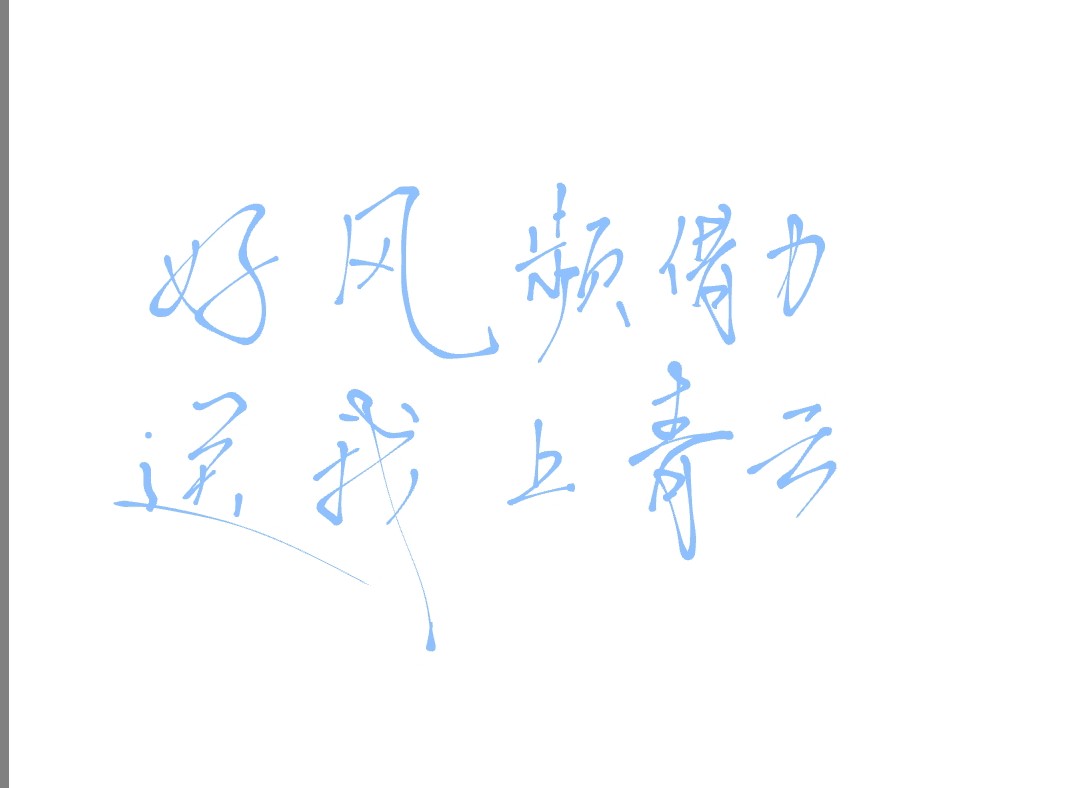 好风频借力
送我上青云